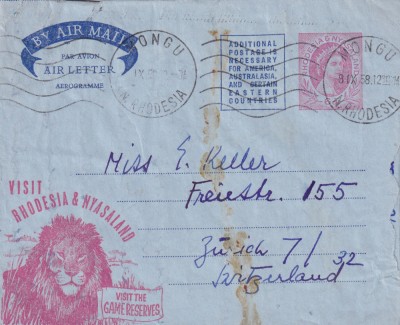 BY AIR MAIL
PAR AVION
AIR LETTER
AEROGRAMME
MONGU
IX
N. RHODESIA
ADDITIONAL
POSTAGE IS
NECESSARY
FOR AMERICA,
AUSTRALASIA,
AND CERTAIN
EASTERN
COUNTRIES
RHODESIA & NYASALAND
MONGU
8 IX 58.12
N. RHODESIA
Miss E. Keller
Freiestr. 155
Zürich 7/32
Switzerland
VISIT
RHODESIA & NYASALAND
VISIT THE
GAME RESERVES